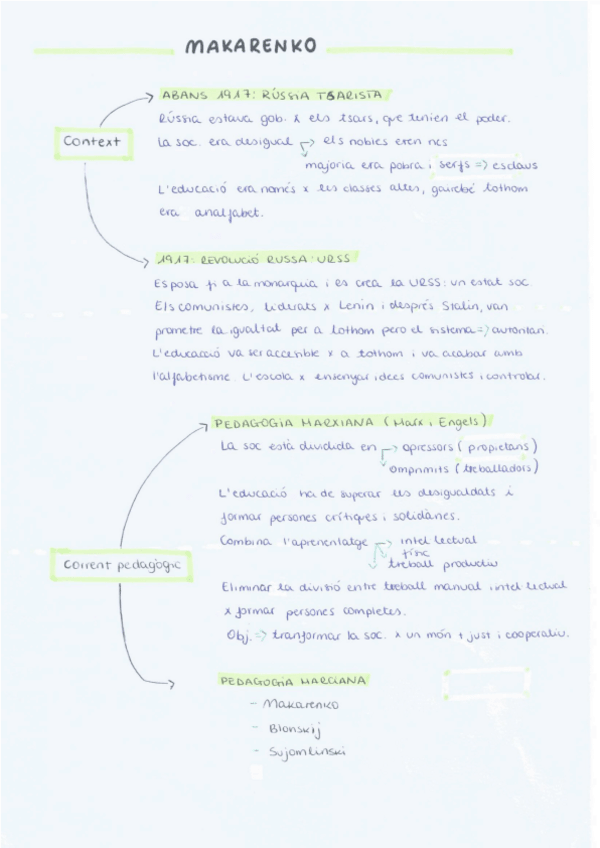 MAKARENKO
ABANS 1917: RÚSSIA TSARISTA
Rússia estava gob. x els tsars, que tenien el poder.
Context
La soc. era desigual → els nobles eren rics
majoria era pobra i serfs => esclaus
L'educació era només x les classes altes, gairebé tothom
era analfabet.
1917: REVOLUCIÓ RUSSA: URSS
Es posa fi a la monarquia i es crea la URSS: un estat soc.
Els comunistes, liderats x Lenin i després Stalin, van
prometre la igualtat per a tothom pero el sistema => autoritari.
L'educació va ser accesible x a tothom i va acabar amb
l'alfabetisme. L'escola x ensenyar idees comunistes i controlar.
PEDAGOGIA MARXIANA (Marx i Engels)
La soc està dividida en → opressors (propietaris)
omprimits (treballadors)
L'educació ha de superar les desigualdats i
formar persones crítiques i solidàries.
Combina l'aprenentatge → intel lectual
físic
treball productiu
Corrent pedagògic
Eliminar la divisió entre treball manual, intel lectual
x formar persones completes.
Obj. => tranformar la soc. x un món + just i cooperatiu.
PEDAGOGIA MARCIANA
- Makarenko
- Blonskij
- Sujomlinski